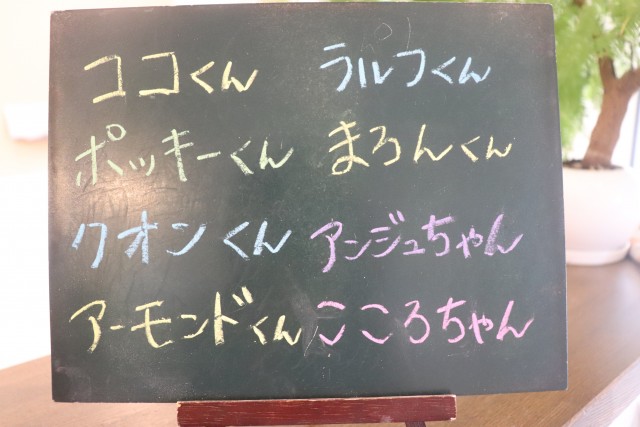 ココくん ラルフくん
ポッキーくん まろんくん
クオンくん アンジュちゃん
アーモンドくん こころちゃん